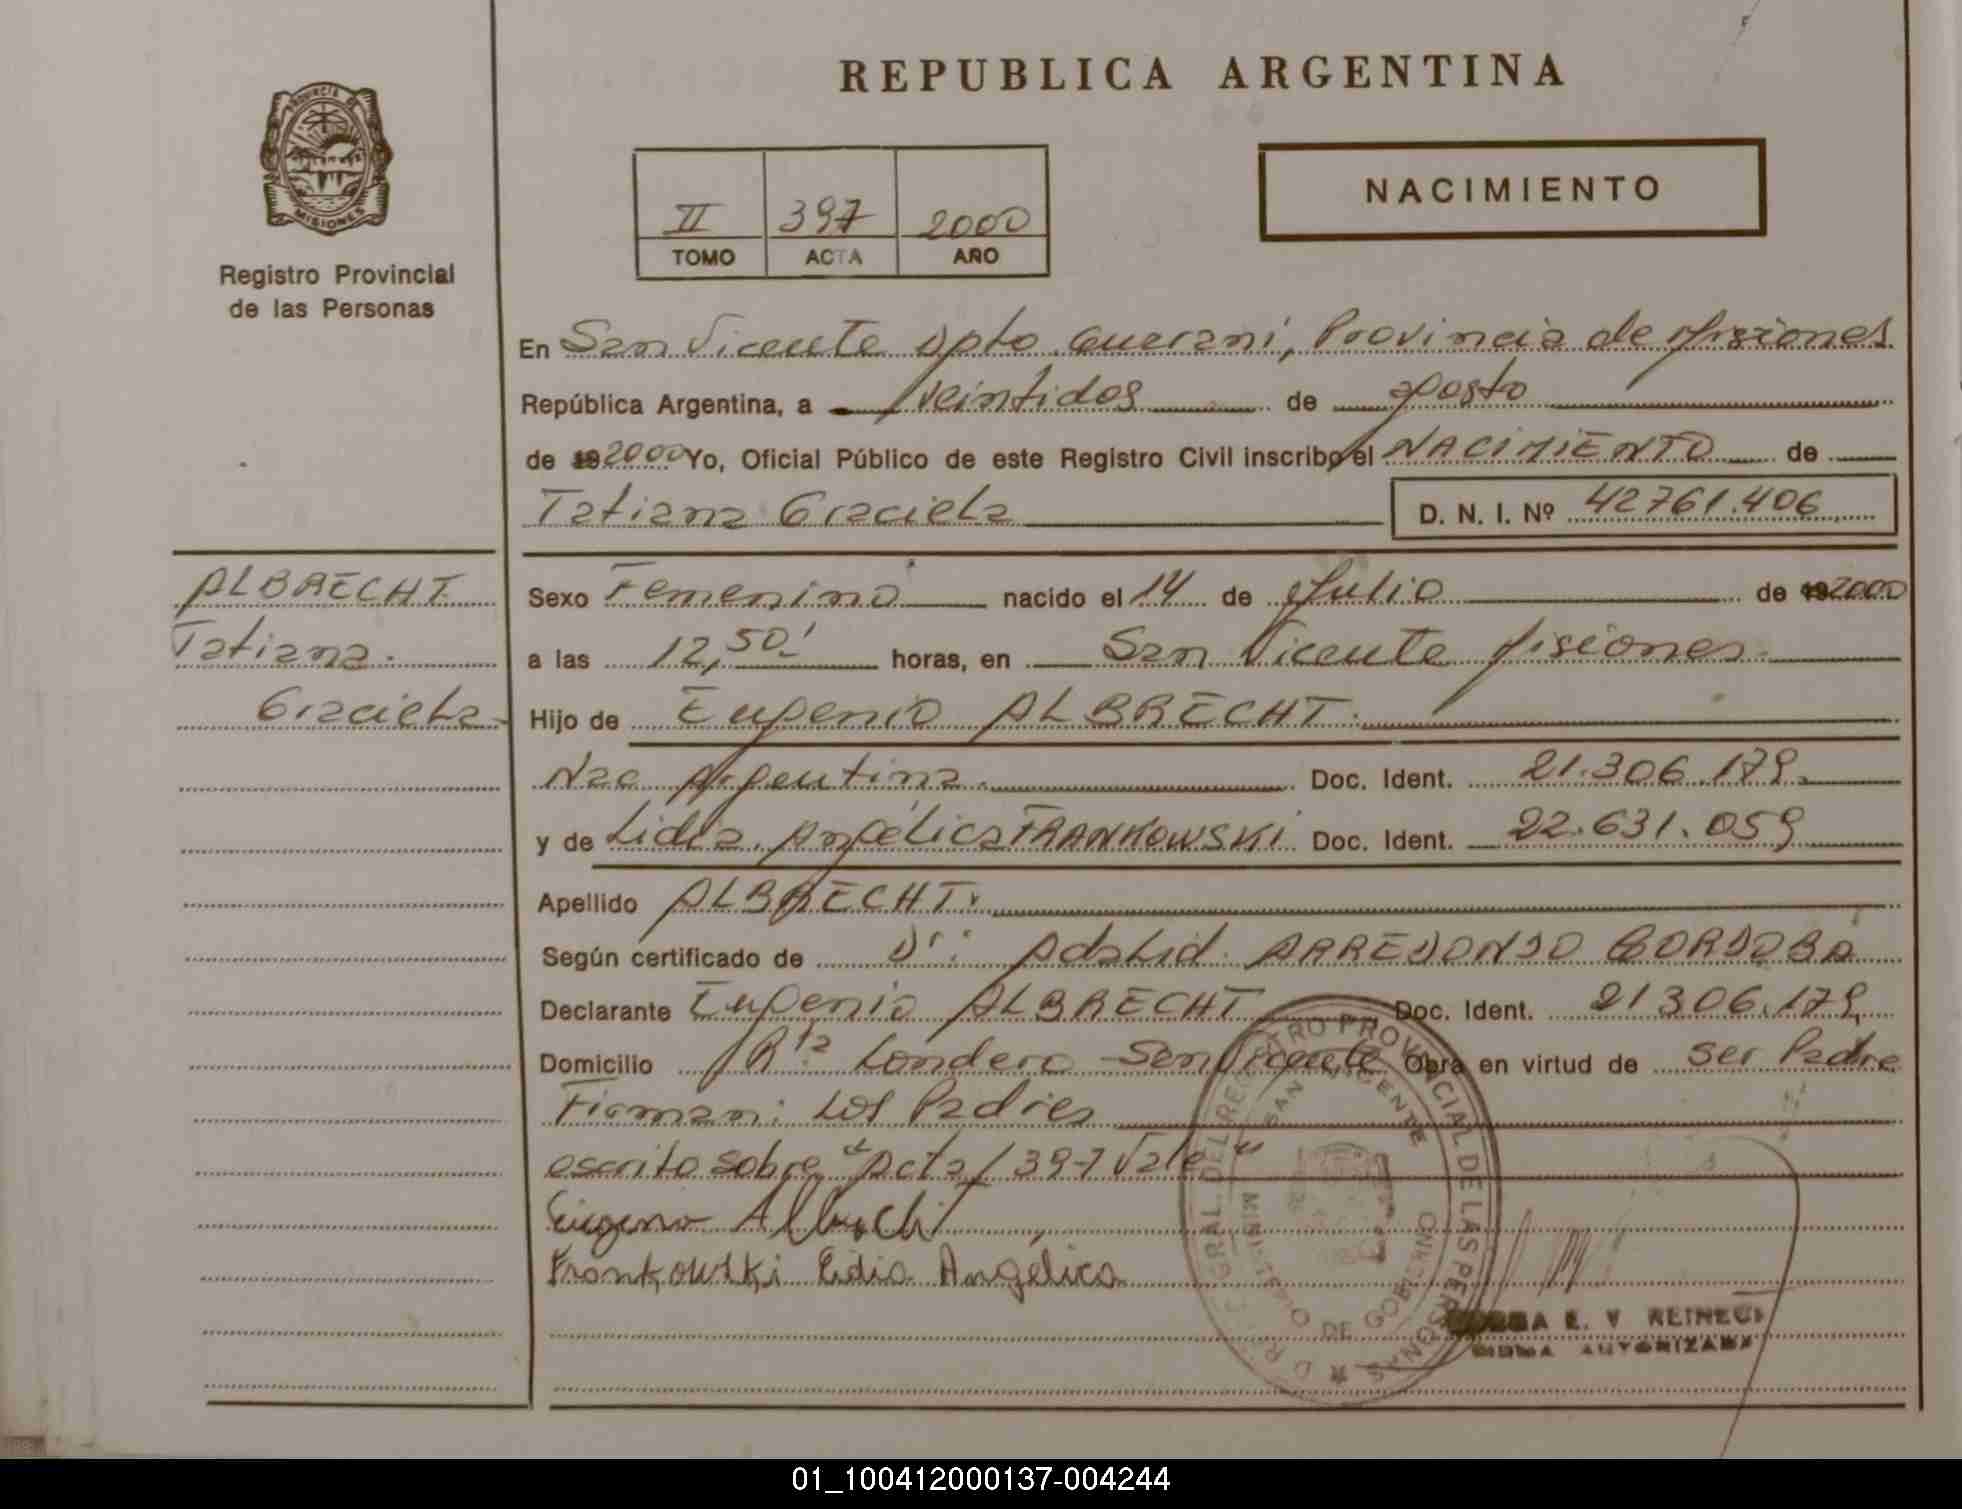 REPUBLICA ARGENTINA
PROVINCIA DE
MISIONES
Registro Provincial
de las Personas
II 397 2000
TOMO ACTA AÑO
NACIMIENTO
En San Vicente Dpto Guarani, Provincia de Misiones
República Argentina, a veintidos de agosto
de 19 2000 Yo, Oficial Público de este Registro Civil inscribo el NACIMIENTO de
Tatiana Graciela D. N. I. Nº 42761.406
ALBRECHT
Tatiana
Graciela
Sexo Femenino nacido el 14 de Julio de 19 2000
a las 12,50' horas, en San Vicente Misiones
Hijo de Eugenio ALBRECHT
Nac Argentina Doc. Ident. 21.306.179
y de Lidia Angélica FRANKOWSKI Doc. Ident. 22.631.059
Apellido ALBRECHT
Según certificado de Dr. Adalid ARREDONDO CORDOBA
Declarante Eugenio ALBRECHT Doc. Ident. 21306.179
Domicilio Londero San Vicente Obra en virtud de ser Padre
Firman: Los Padres
escrito sobre "Acta/397 Vale"
Eugenio Albrecht
Frankowski Lidia Angélica
GRAL. DEL REGISTRO PROVINCIAL DE LAS PERSONAS
SAN VICENTE
MINISTERIO DE GOBIERNO
E. V REINECK
FIRMA AUTORIZADA
01_100412000137-004244